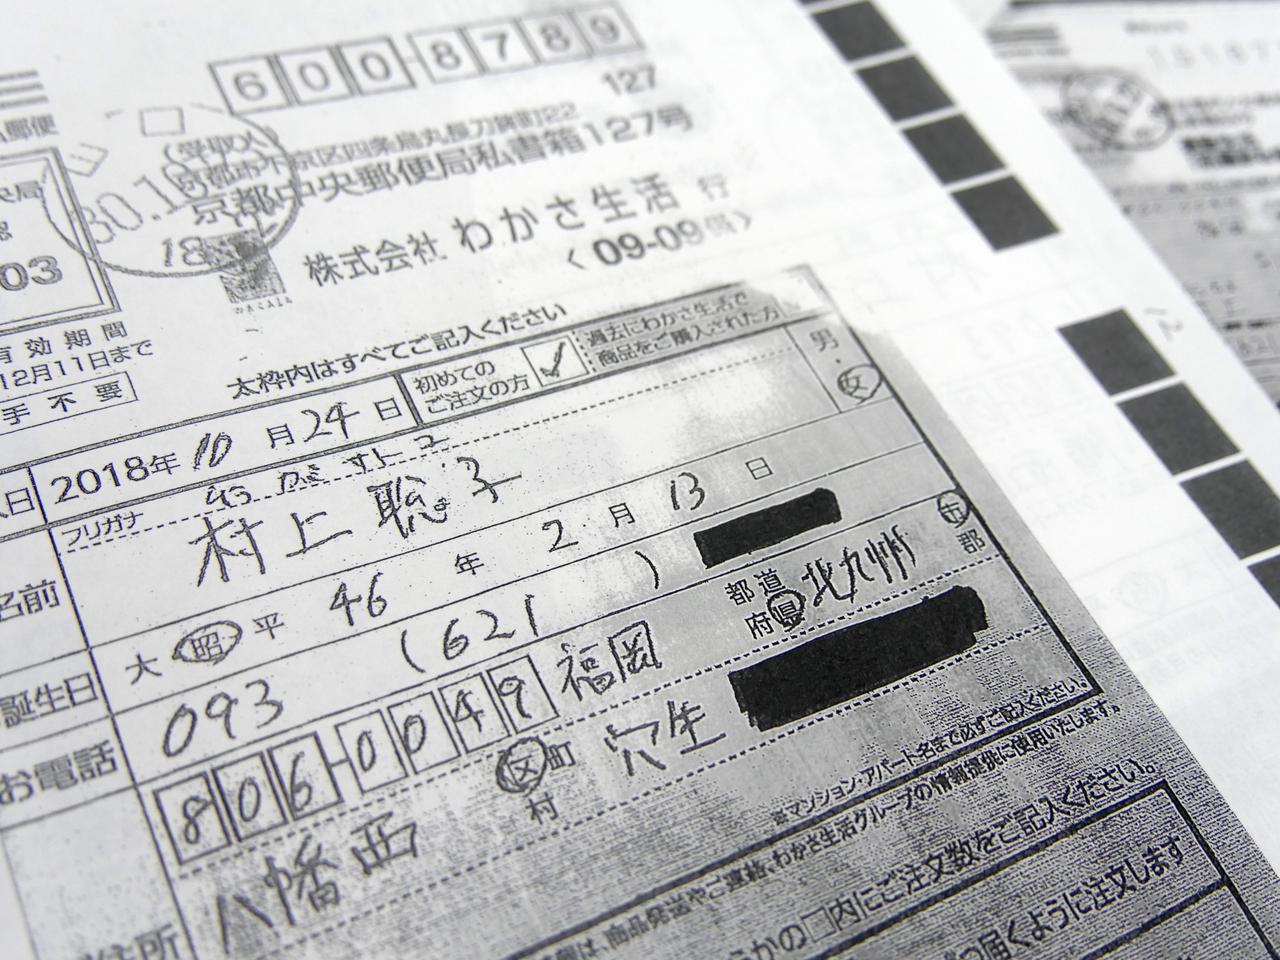 600-8789
127
(受取人)
京都市下京区四条烏丸長刀鉾町22
京都中央郵便局私書箱127号
株式会社 わかさ生活 行
〈09-09係〉
郵便
03
有効期間
12月11日まで
手不要
太枠内はすべてご記入ください
2018年 10 月 24 日 初めてのご注文の方 ✓ 過去にわかさ生活で商品をご購入された方
フリガナ
名前 村上 聡子 男・女
誕生日 大 昭 平 46 年 2 月 13 日
お電話 093 ( 621 )
806-0049 福岡 都道府県 北九州 市郡
ご住所 八幡西 区町村 穴生
※マンション・アパート名まで必ずご記入ください。
商品発送やご連絡、わかさ生活グループの情報提供に使用いたします。
かの□内にご注文数をご記入ください。
つ届くように注文します